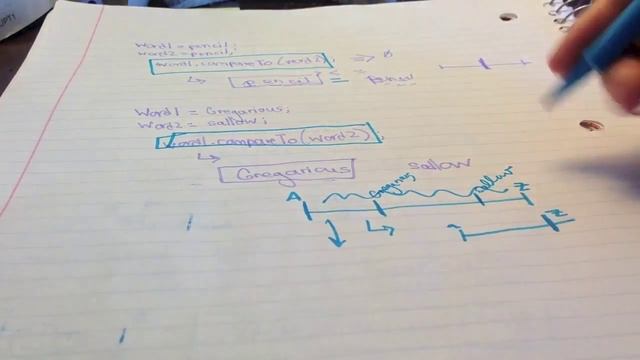 word1 = pencil;
word2 = pencil;
word1.compareTo(word2); => 0
pencil = pencil
Word1 = Gregarious;
Word2 = sallow;
word1.compareTo(word2);
Gregarious sallow
A Gregarious sallow Z
Z